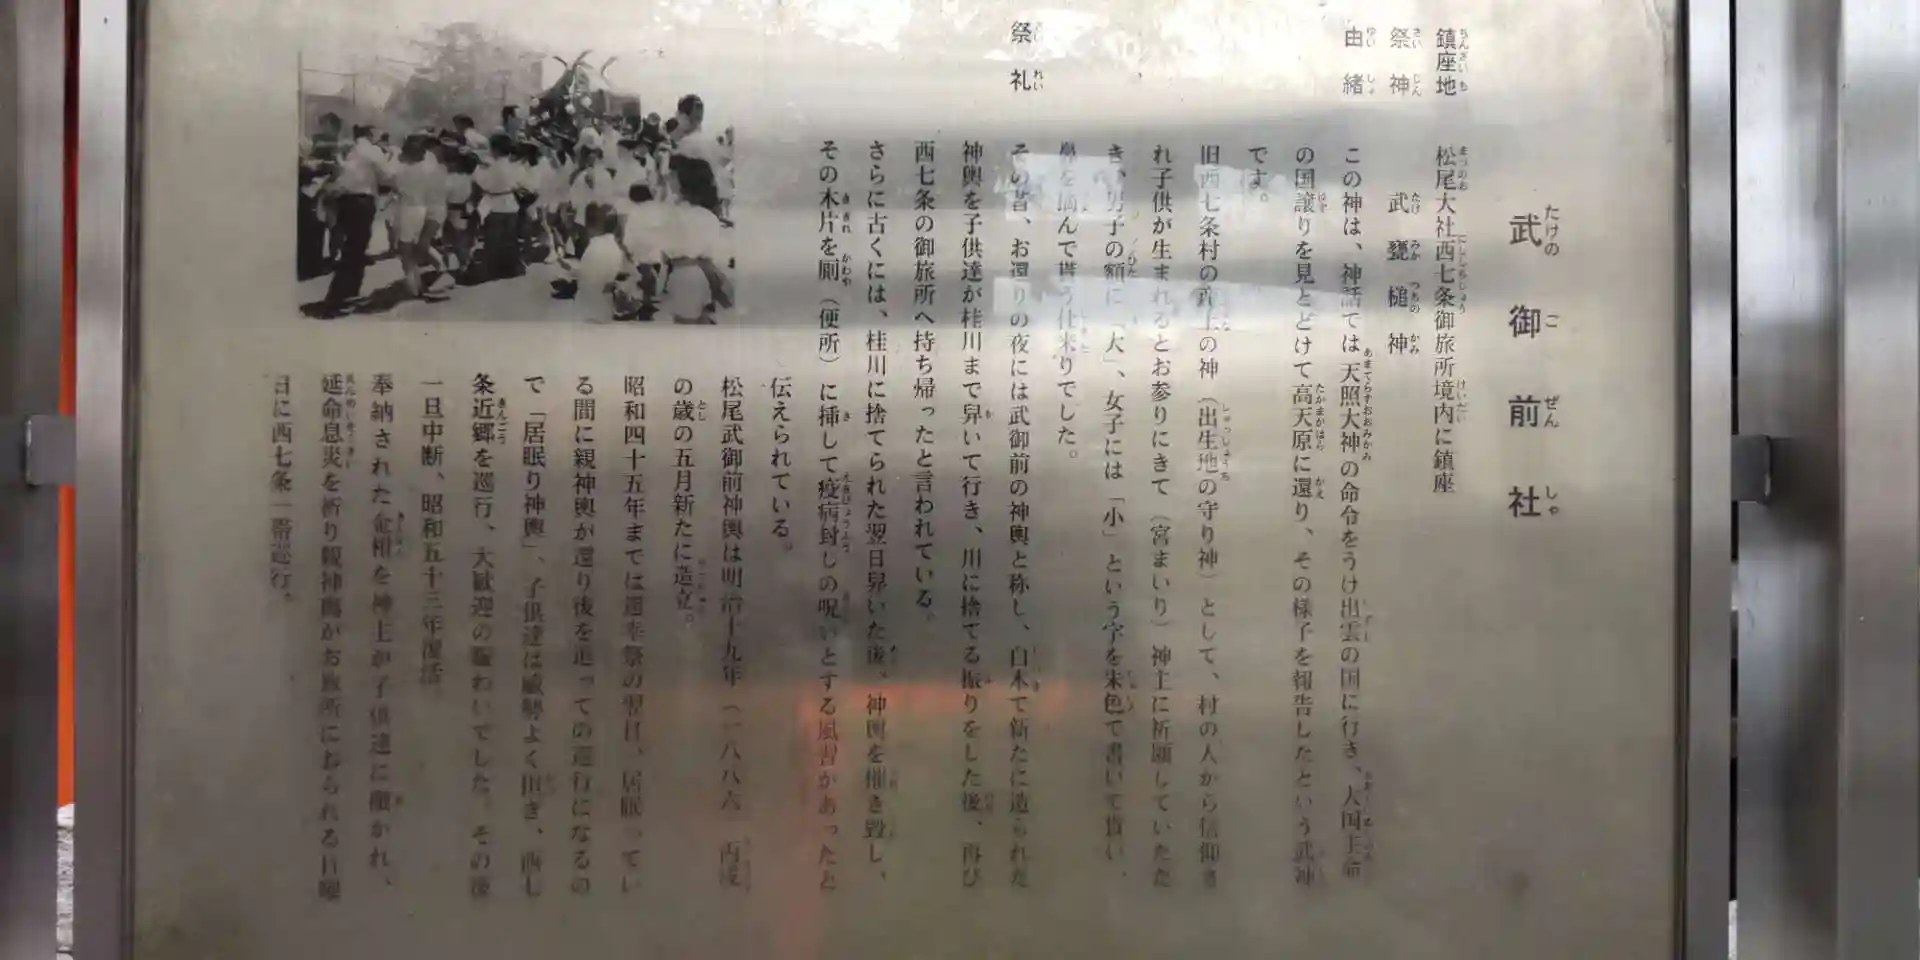 武御前社
鎮座地　松尾大社西七条御旅所境内に鎮座
祭神　武甕槌神
由緒　この神は、神話では天照大神の命令をうけ出雲の国に行き、大国主命
の国譲りを見とどけて高天原に還り、その様子を報告したという武神
です。
旧西七条村の産土の神（出生地の守り神）として、村の人から信仰さ
れ子供が生まれるとお参りにきて（宮まいり）神主に祈願していただ
き、男子の額に「大」、女子には「小」という字を朱色で書いて貰い、
鼻を摘んで貰う仕来りでした。
祭礼　その昔、お還りの夜には武御前の神輿と称し、白木で新たに造られた
神輿を子供達が桂川まで舁いて行き、川に捨てる振りをした後、再び
西七条の御旅所へ持ち帰ったと言われている。
さらに古くには、桂川に捨てられた翌日舁いた後、神輿を摧き毀し、
その木片を厠（便所）に挿して疫病封じの呪いとする風習があったと
伝えられている。
松尾武御前神輿は明治十九年（一八八六）丙戌
の歳の五月新たに造立。
昭和四十五年までは還幸祭の翌日、居眠ってい
る間に親神輿が還り後を追っての巡行になるの
で「居眠り神輿」、子供達は威勢よく担ぎ、西七
条近郷を巡行、大歓迎の賑わいでした。その後
一旦中断、昭和五十三年復活。
奉納された金相を神主が子供達に撒かれ、
延命息災を祈り親神輿がお旅所におられる日曜
日に西七条一帯巡行。